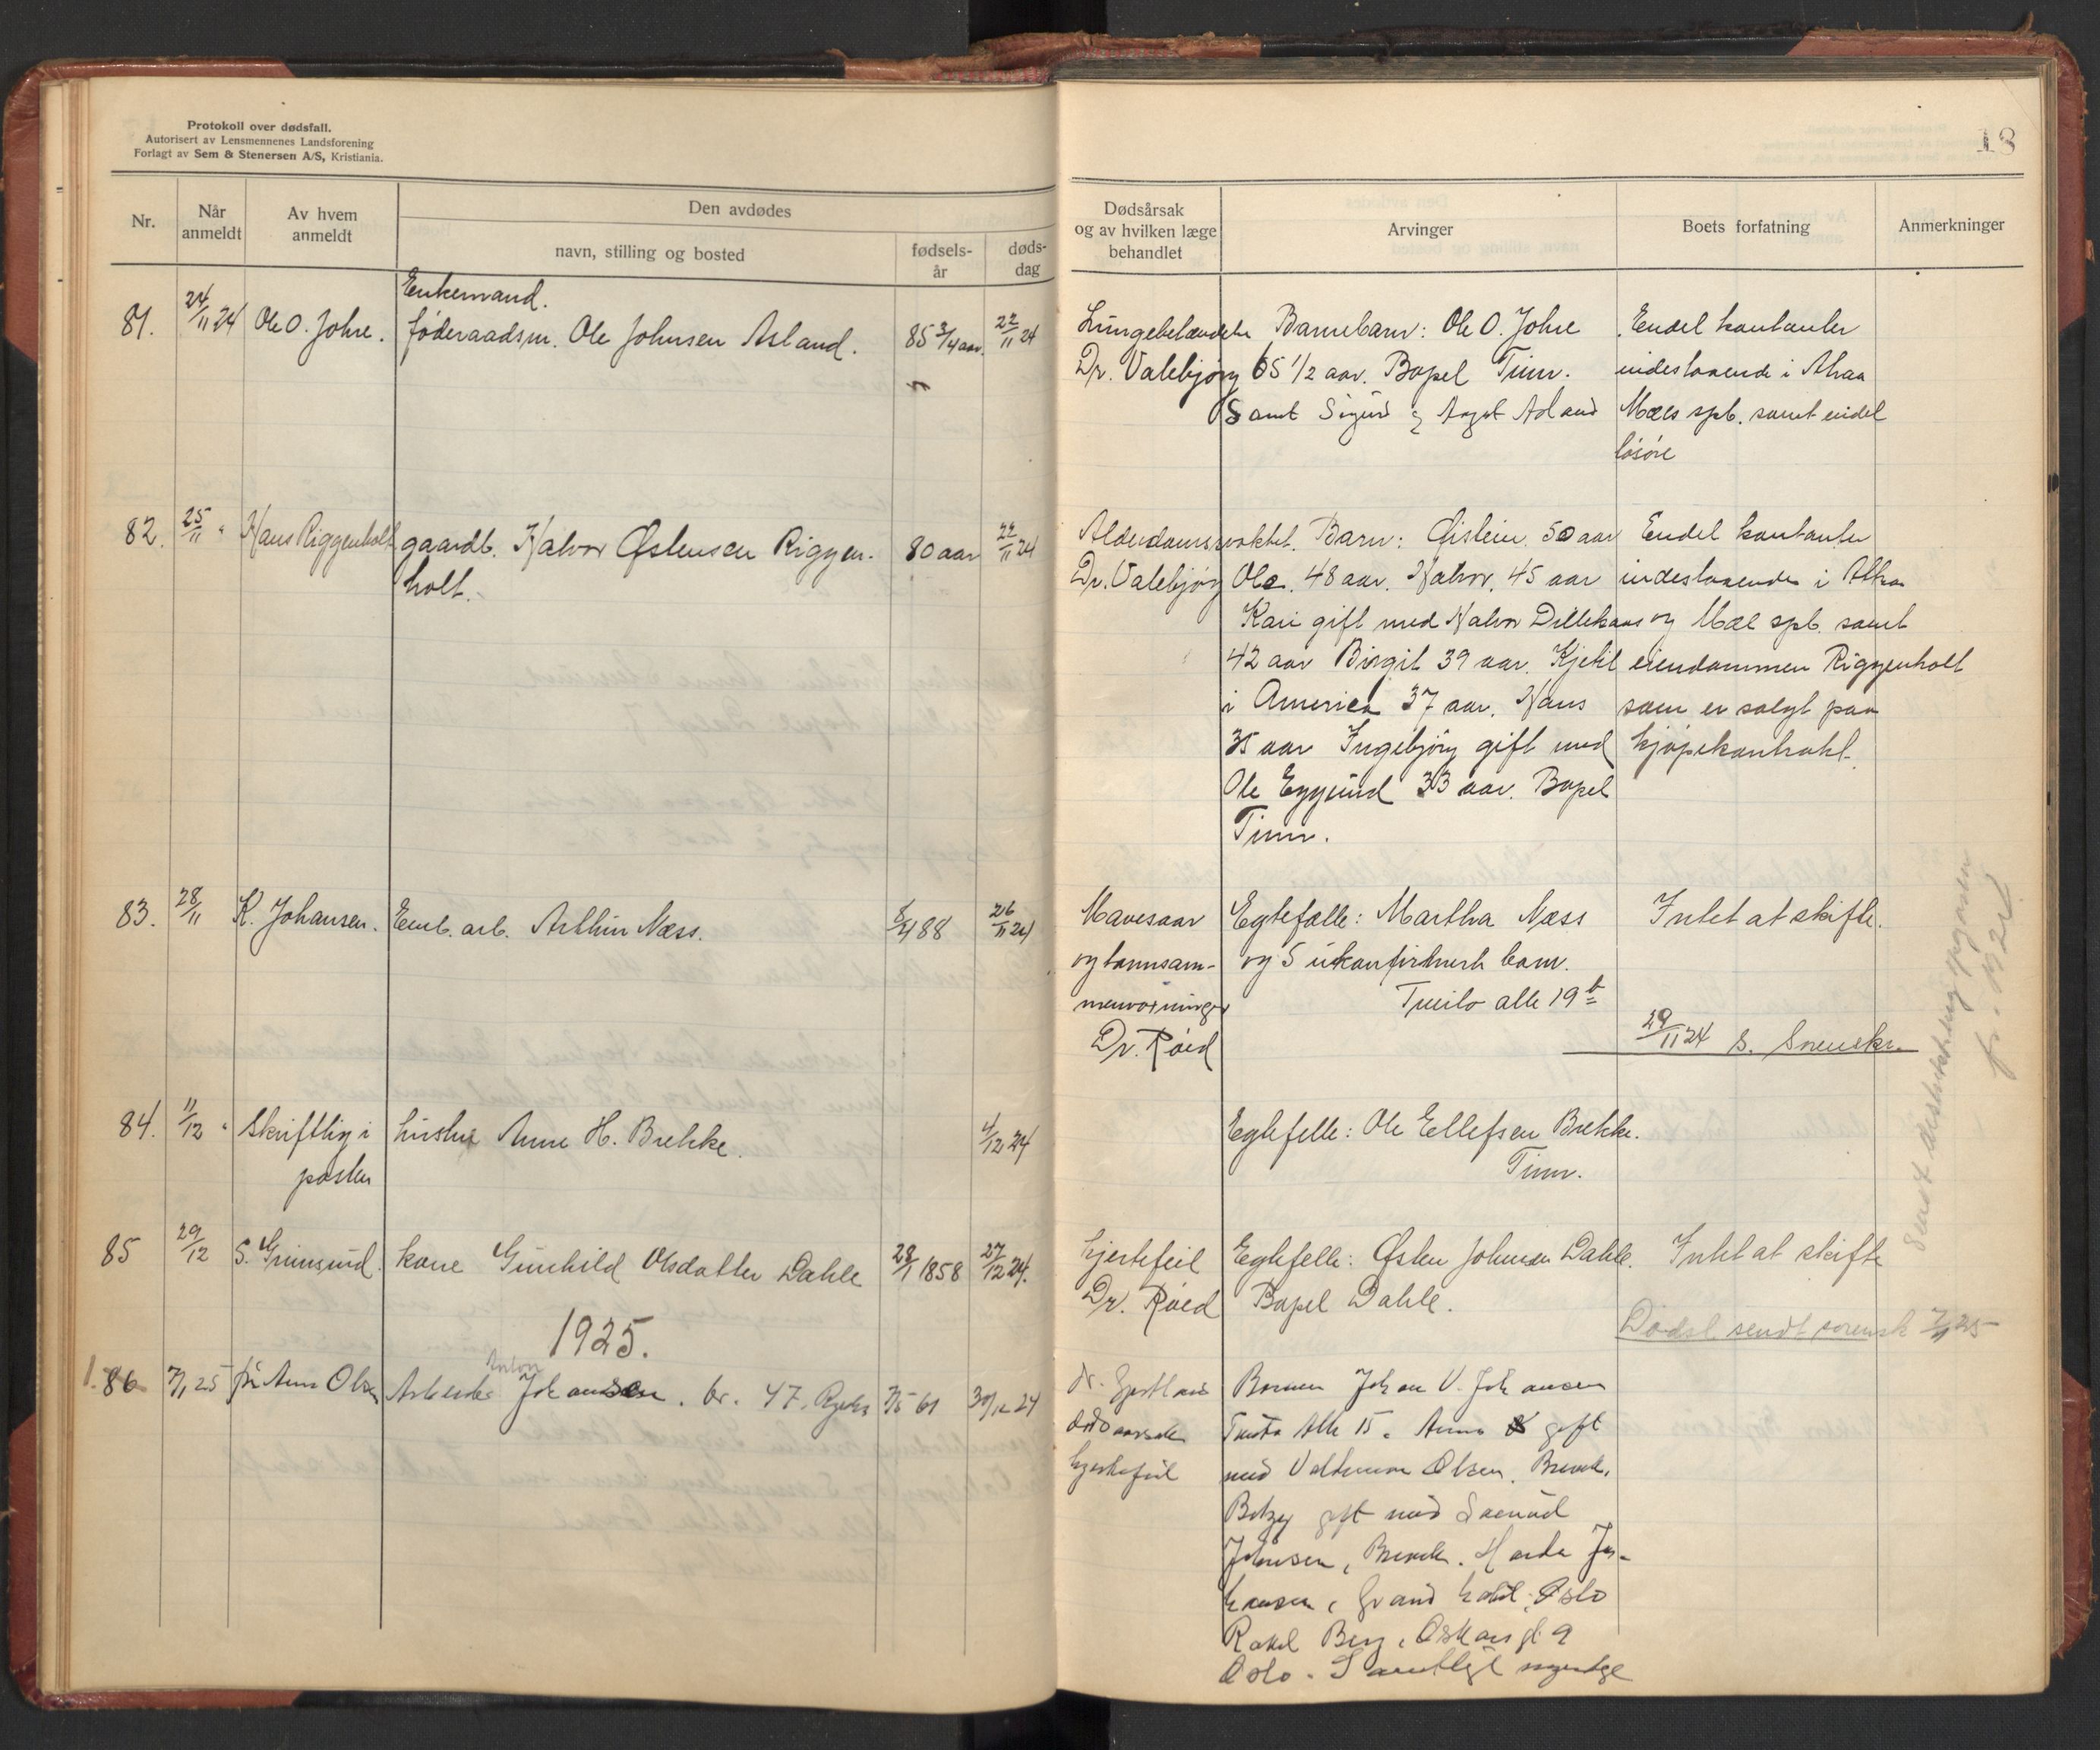 Protokoll over dødsfall.
Autorisert av Lensmennenes Landsforening
Forlagt av Sem & Stenersen A/S, Kristiania.
18
Nr.
Når anmeldt
Av hvem anmeldt
Den avdødes
navn, stilling og bosted
fødsels-
år
døds-
dag
Dødsårsak
og av hvilken læge
behandlet
Arvinger
Boets forfatning
Anmerkninger
81. 24/11 24 Ole O. Johre.
Enkemand.
føderaadsm. Ole Johnsen Asland.
85 3/4 aar. 22/11 24
Dr. Valebjørg
Barnebarn: Ole O. Johre
65 1/2 aar. Bopel Tinn.
Samt Sigurd og Aagot Asland
Endel kontanter
indestaaende i Atraa
Mæls spb. samt endel
løsøre
82. 25/11 " Hans Riggenholt
gaardb. Halvor Østensen Riggen-
holt.
80 aar 22/11 24
Dr. Valebjørg
Barn: Øistein. 50 aar
Ole. 48 aar. Halvor. 45 aar
Kari gift med Halvor
42 aar Birgit 39 aar. Kjetil
i America 37 aar. Hans
35 aar Ingebjörg gift med
Ole Eggund 33 aar. Bopel
Tinn.
Endel kontanter
indestaaende i Atraa
og Mæl spb. samt
eiendommen Riggenholt
som er solgt paa
kjøpekontrakt.
83. 28/11 K. Johansen. Emb. arb. Arthur Næss.
8/4 88 26/11 24
Mavesaar
og tarmsam-
menvoxninger
Dr. Róed
Egtefælle: Martha Næss
og 5 ukonfirmerte barn.
alle 19 b
Intet at skifte.
29/11 24 S. Svenskr.
84. 11/12 " Skriftlig i
posten
hustru Anne H. Brekke.
4/12 24
Egtefelle: Ole Ellefsen Brekke.
Tinn.
85 29/12 S. Grimsrud. kone Gunhild Olsdatter Dahle
28/1 1858 27/12 24.
hjertefeil
Dr. Róed
Egtefelle: Østen Johnsen Dahle.
Bopel Dahle.
Intet at skifte
Dødsf. sendt sorensk 7/1 25
1925.
1. 86 7/1 25 fr Anna Olsen
Anton
Arbeider Johansen. br. 47. Rjukan
7/5 61 30/12 24
hjertefeil
Johan V. Johansen
Alle 15. Anna gift
med Valdemar Olsen. Brevik.
Betzy gift med
Johnsen, Brevik. Jo-
hansen, Grand hotel, Oslo
Rakel Berg, Oskars gt. 9
Oslo. Samtlige myndige